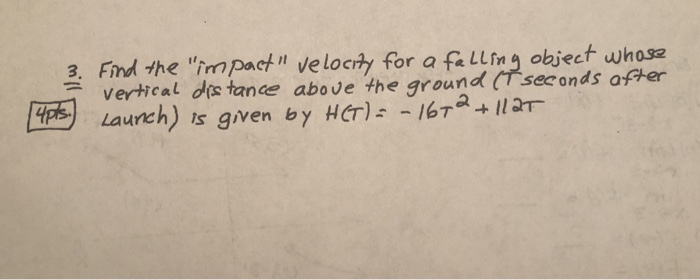 3. Find the "impact" velocity for a falling object whose
vertical distance above the ground (T seconds after
4pts. Launch) is given by H(T) = -16T² + 112T